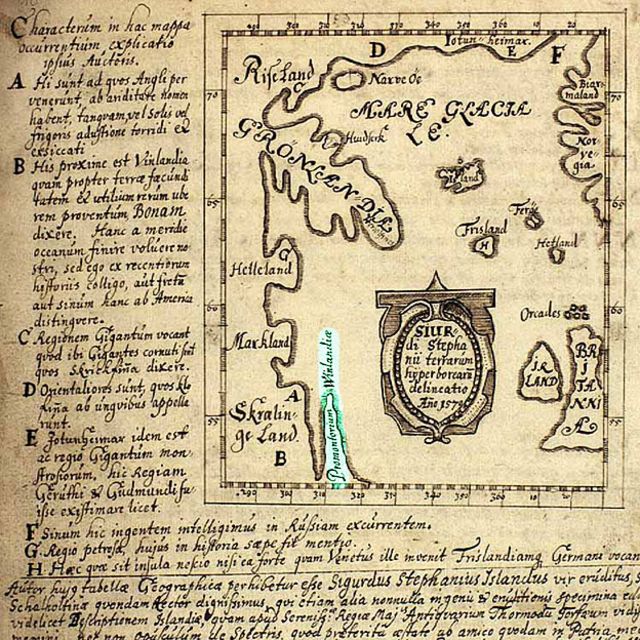 Characterum in hac mappa
occurrentium explicatio
ipsius Auctoris.
A Hi sunt ad quos Angli per
venerunt, ab ariditate nomen
habent, tanquam vel Solis vel
frigoris adustione torridi et
exsiccati
B His proxime est Vinlandia
quam propter terræ fæcundi
tatem et utilium rerum ube
rem proventum Bonam
dixere. Hanc a meridie
oceanum finire voluere no
stri, sed ego ex recentiorum
historiis colligo, aut fretum
aut sinum hanc ab America
distinguere.
C Regionem Gigantum vocant
quod ibi Gigantes cornuti sint
quos Skrickfina dixere.
D Orientaliores sunt, quos Klo
fina ab unguibus appella
runt.
E Jotunheimar idem est
ac regio Gigantum mon
strosorum, hic Regiam
Geruthi & Gudmundi fu
isse existimare licet.
F Sinum hic ingentem intelligimus in Russiam excurrentem.
G. Regio petrosa, hujus in historia sæpe fit mentio.
H. Hæc quæ sit insula nescio nisi ea forte quam Venetus ille invenit Trislandiamq Germani vocan
Autor huj tabellæ Geographicæ perhibetur esse Sigurdus Stephanius Islandus vir eruditus,
Schalholtinæ quondam Rector dignissimus, qui etiam alia nonnulla ingenii & eruditionis specimina
videlicet Descriptionem Islandiæ quam apud Sereniss: Regiæ Maj: Antiqvarium Thormodu Torfæum
non opusculum de Spectris, quod præterita æstate ab amico quodam in Patria
290 300 310 320 330 340 350 10 20
D Jotun-heimar. E F
Riseland
C
Narve Oe
Biar
maland
70
70
MARE GLACIA
LE.
Huidserk
GRONLANDIA
Nor
vegia
Island
65
65
Ferö
Frisland
H
Hetland
G
Helleland
60
60
Orcades
SIUR
di Stepha
nii terrarum
hyperborearũ
delineatio
Año 1570
Markland
IR
LAND
BRI
TANNI
Æ
Winlandiæ
Promontorium
A
Skrælin
ge Land.
B
55
55
290 300 310 320 330 340 350 10 20